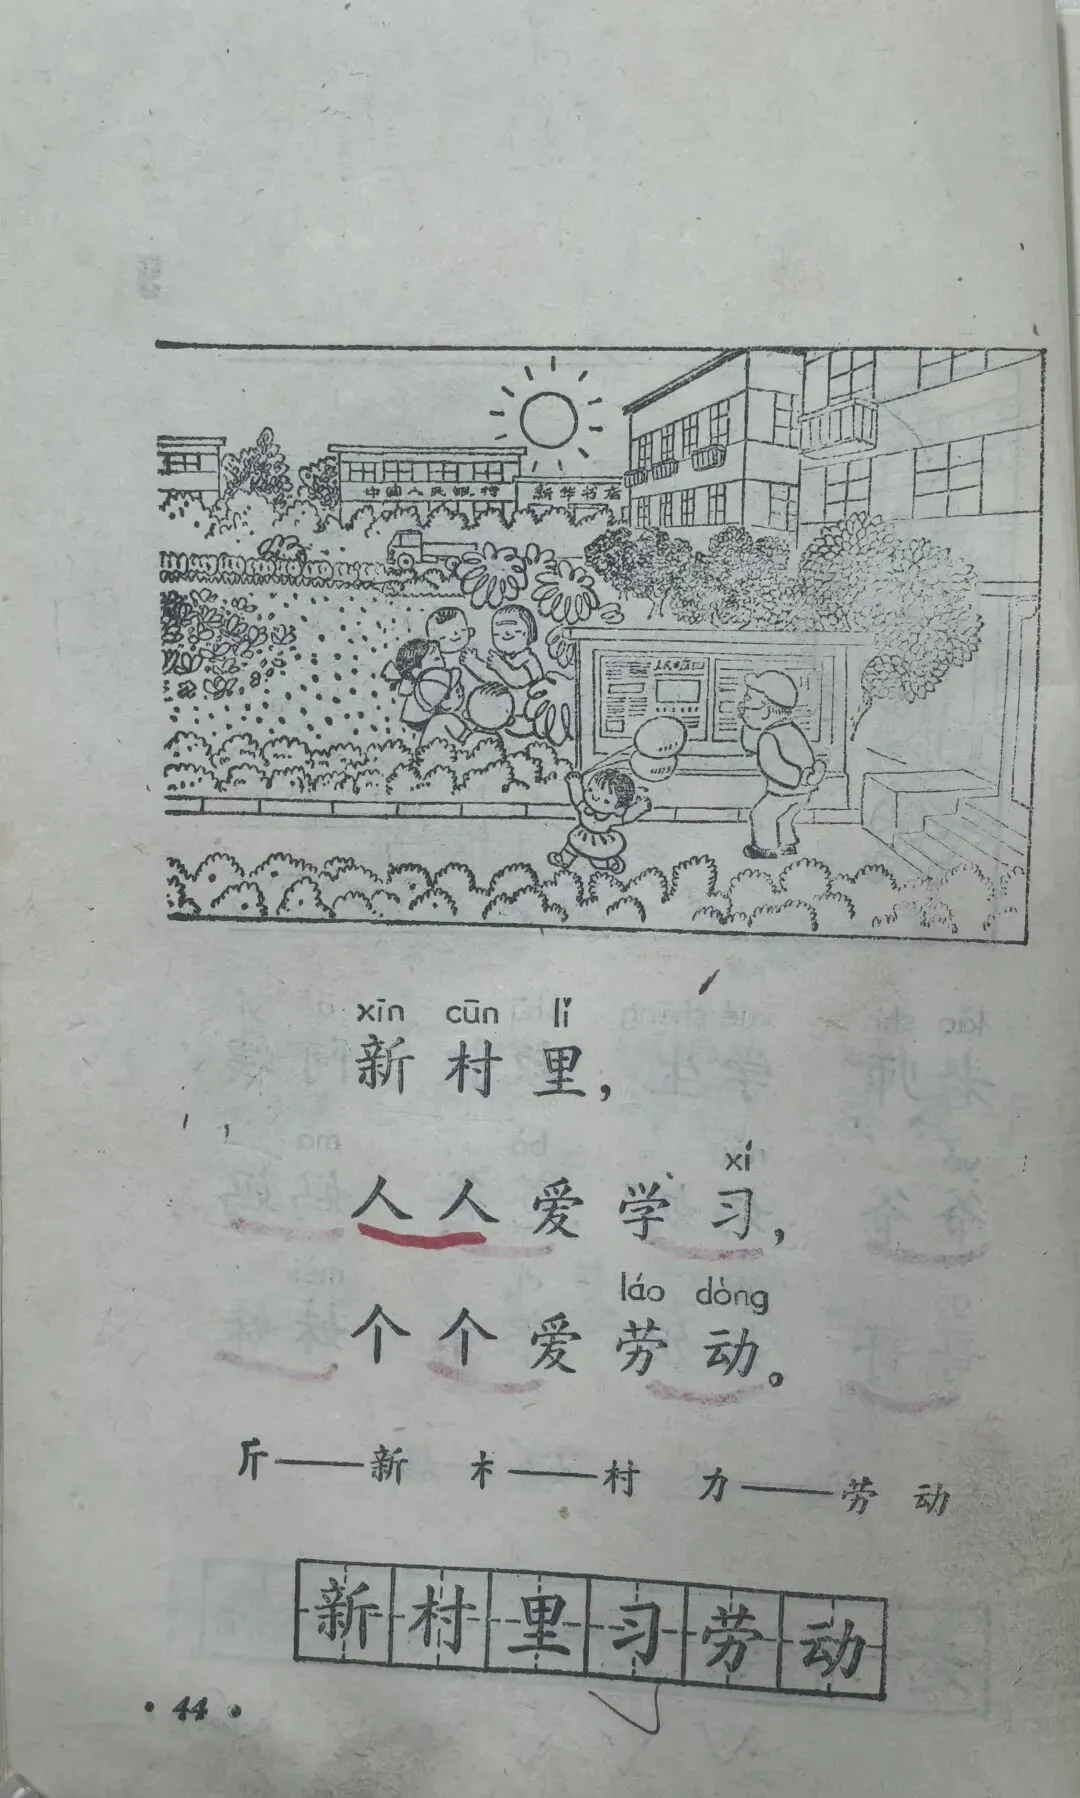 中国人民银行 新华书店
人民日报
xīn cūn lǐ
新村里，
xí
人人爱学习，
láo dòng
个个爱劳动。
斤——新 木——村 力——劳 动
新村里习劳动
·44·